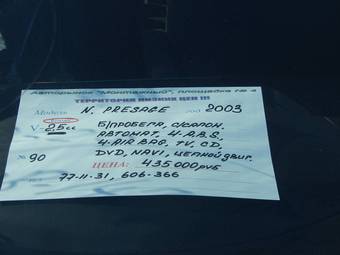 Авторынок "Монтажный", площадка № 4
ТЕРРИТОРИЯ НИЗКИХ ЦЕН !!!
Модель N. PRESAGE год 2003
V- 2,5 cc Б/ПРОБЕГА, С/САЛОН,
АВТОМАТ, 4-A.B.S.
4-AIR BAG, TV, CD,
№ 90 DVD, NAVI, ЦЕПНОЙ ДВИГ.
ЦЕНА: 435 000 РУБ
77-11-31, 606-366